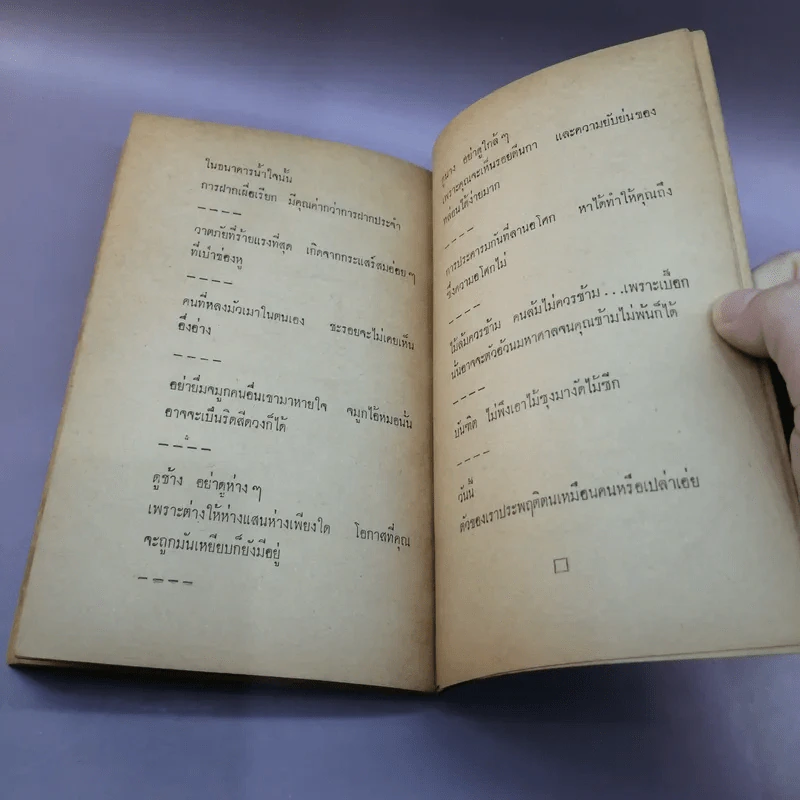 ในธนาคารน้ำใจนั้น
การฝากเผื่อเรียก มีคุณค่ากว่าการฝากประจำ
----
วาตภัยที่ร้ายแรงที่สุด เกิดจากกระแสร์ลมอ่อย ๆ
ที่เป่าช่องหู
----
คนที่หลงมัวเมาในตนเอง ชะรอยจะไม่เคยเห็น
อึ่งอ่าง
----
อย่ายืมจมูกคนอื่นเขามาหายใจ จมูกไอ้หมอนั่น
อาจจะเป็นริดสีดวงก็ได้
----
ดูช้าง อย่าดูห่าง ๆ
เพราะต่างให้ห่างแสนห่างเพียงใด โอกาสที่คุณ
จะถูกมันเหยียบก็ยังมีอยู่
----
ดูนาง อย่าดูใกล้ ๆ
เพราะคุณจะเห็นรอยตีนกา และความยับย่นของ
หล่อนได้ง่ายมาก
----
การประคารมกันที่ลานอโศก หาได้ทำให้คุณถึง
ซึ่งความอโศกไม่
----
ไม้ล้มควรข้าม คนล้มไม่ควรข้าม...เพราะเบื๊อก
นั้นอาจจะตัวอ้วนมหาศาลจนคุณข้ามไม่พ้นก็ได้
----
บัณฑิต ไม่พึงเอาไม้ซุงมางัดไม้ซีก
----
วันนี้
ตัวของเราประพฤติตนเหมือนคนหรือเปล่าเอ่ย